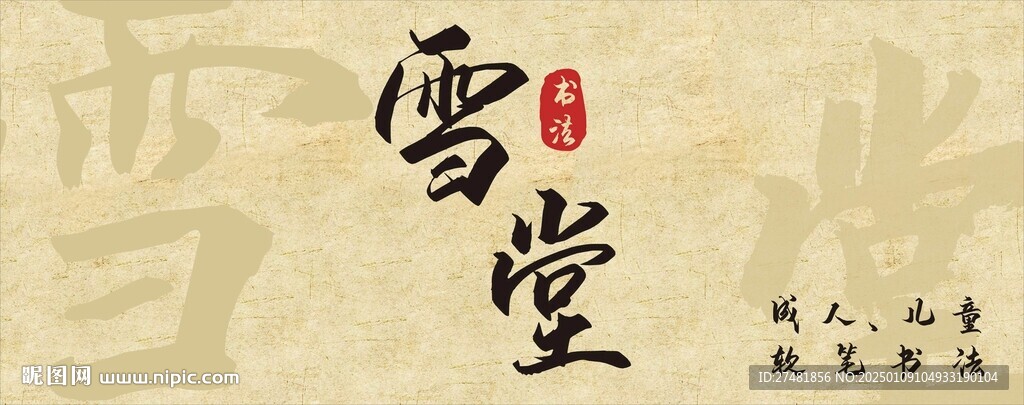 雪堂
书法
成人、儿童
软笔书法
昵图网 www.nipic.com
ID:27481856 NO:20250109104933190104